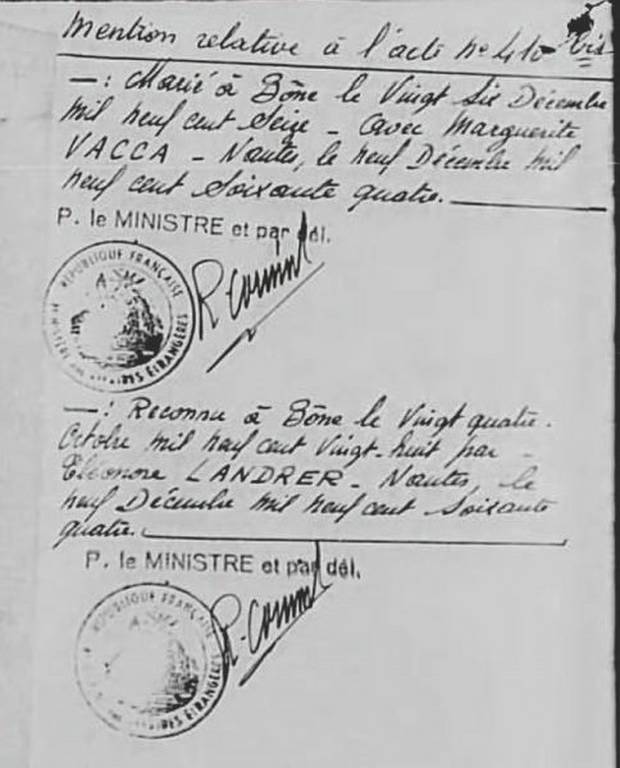 Mention relative à l'acte n° 410 bis
—: Marié à Bône le Vingt Six Décembre
mil neuf cent Seize - avec Marguerite
VACCA - Nantes, le neuf Décembre mil
neuf cent soixante quatre.
P. le MINISTRE et par dél.
RÉPUBLIQUE FRANÇAISE
MINISTÈRE DES AFFAIRES ÉTRANGÈRES
—: Reconnu à Bône le Vingt quatre.
Octobre mil neuf cent Vingt-huit par -
Eléonore LANDRER - Nantes, le
neuf Décembre mil neuf cent Soixante
quatre.
P. le MINISTRE et par dél.
RÉPUBLIQUE FRANÇAISE
ÉTRANGÈRES